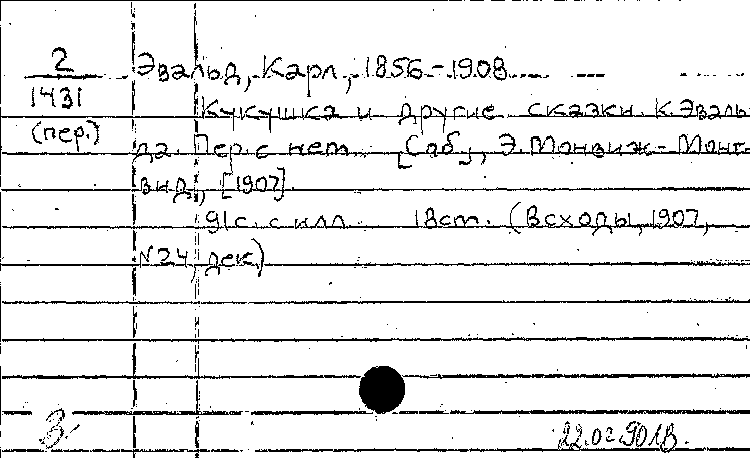 2
1431
(пер.)
Эвальд, Карл, 1856-1908.
Кукушка и другие сказки К. Эваль-
да. Пер. с нем. [Саб.], Э. Монвиж-Монт-
вид, [1907].
91с. с илл. 18см. (Всходы, 1907,
N24, дек.)
З.